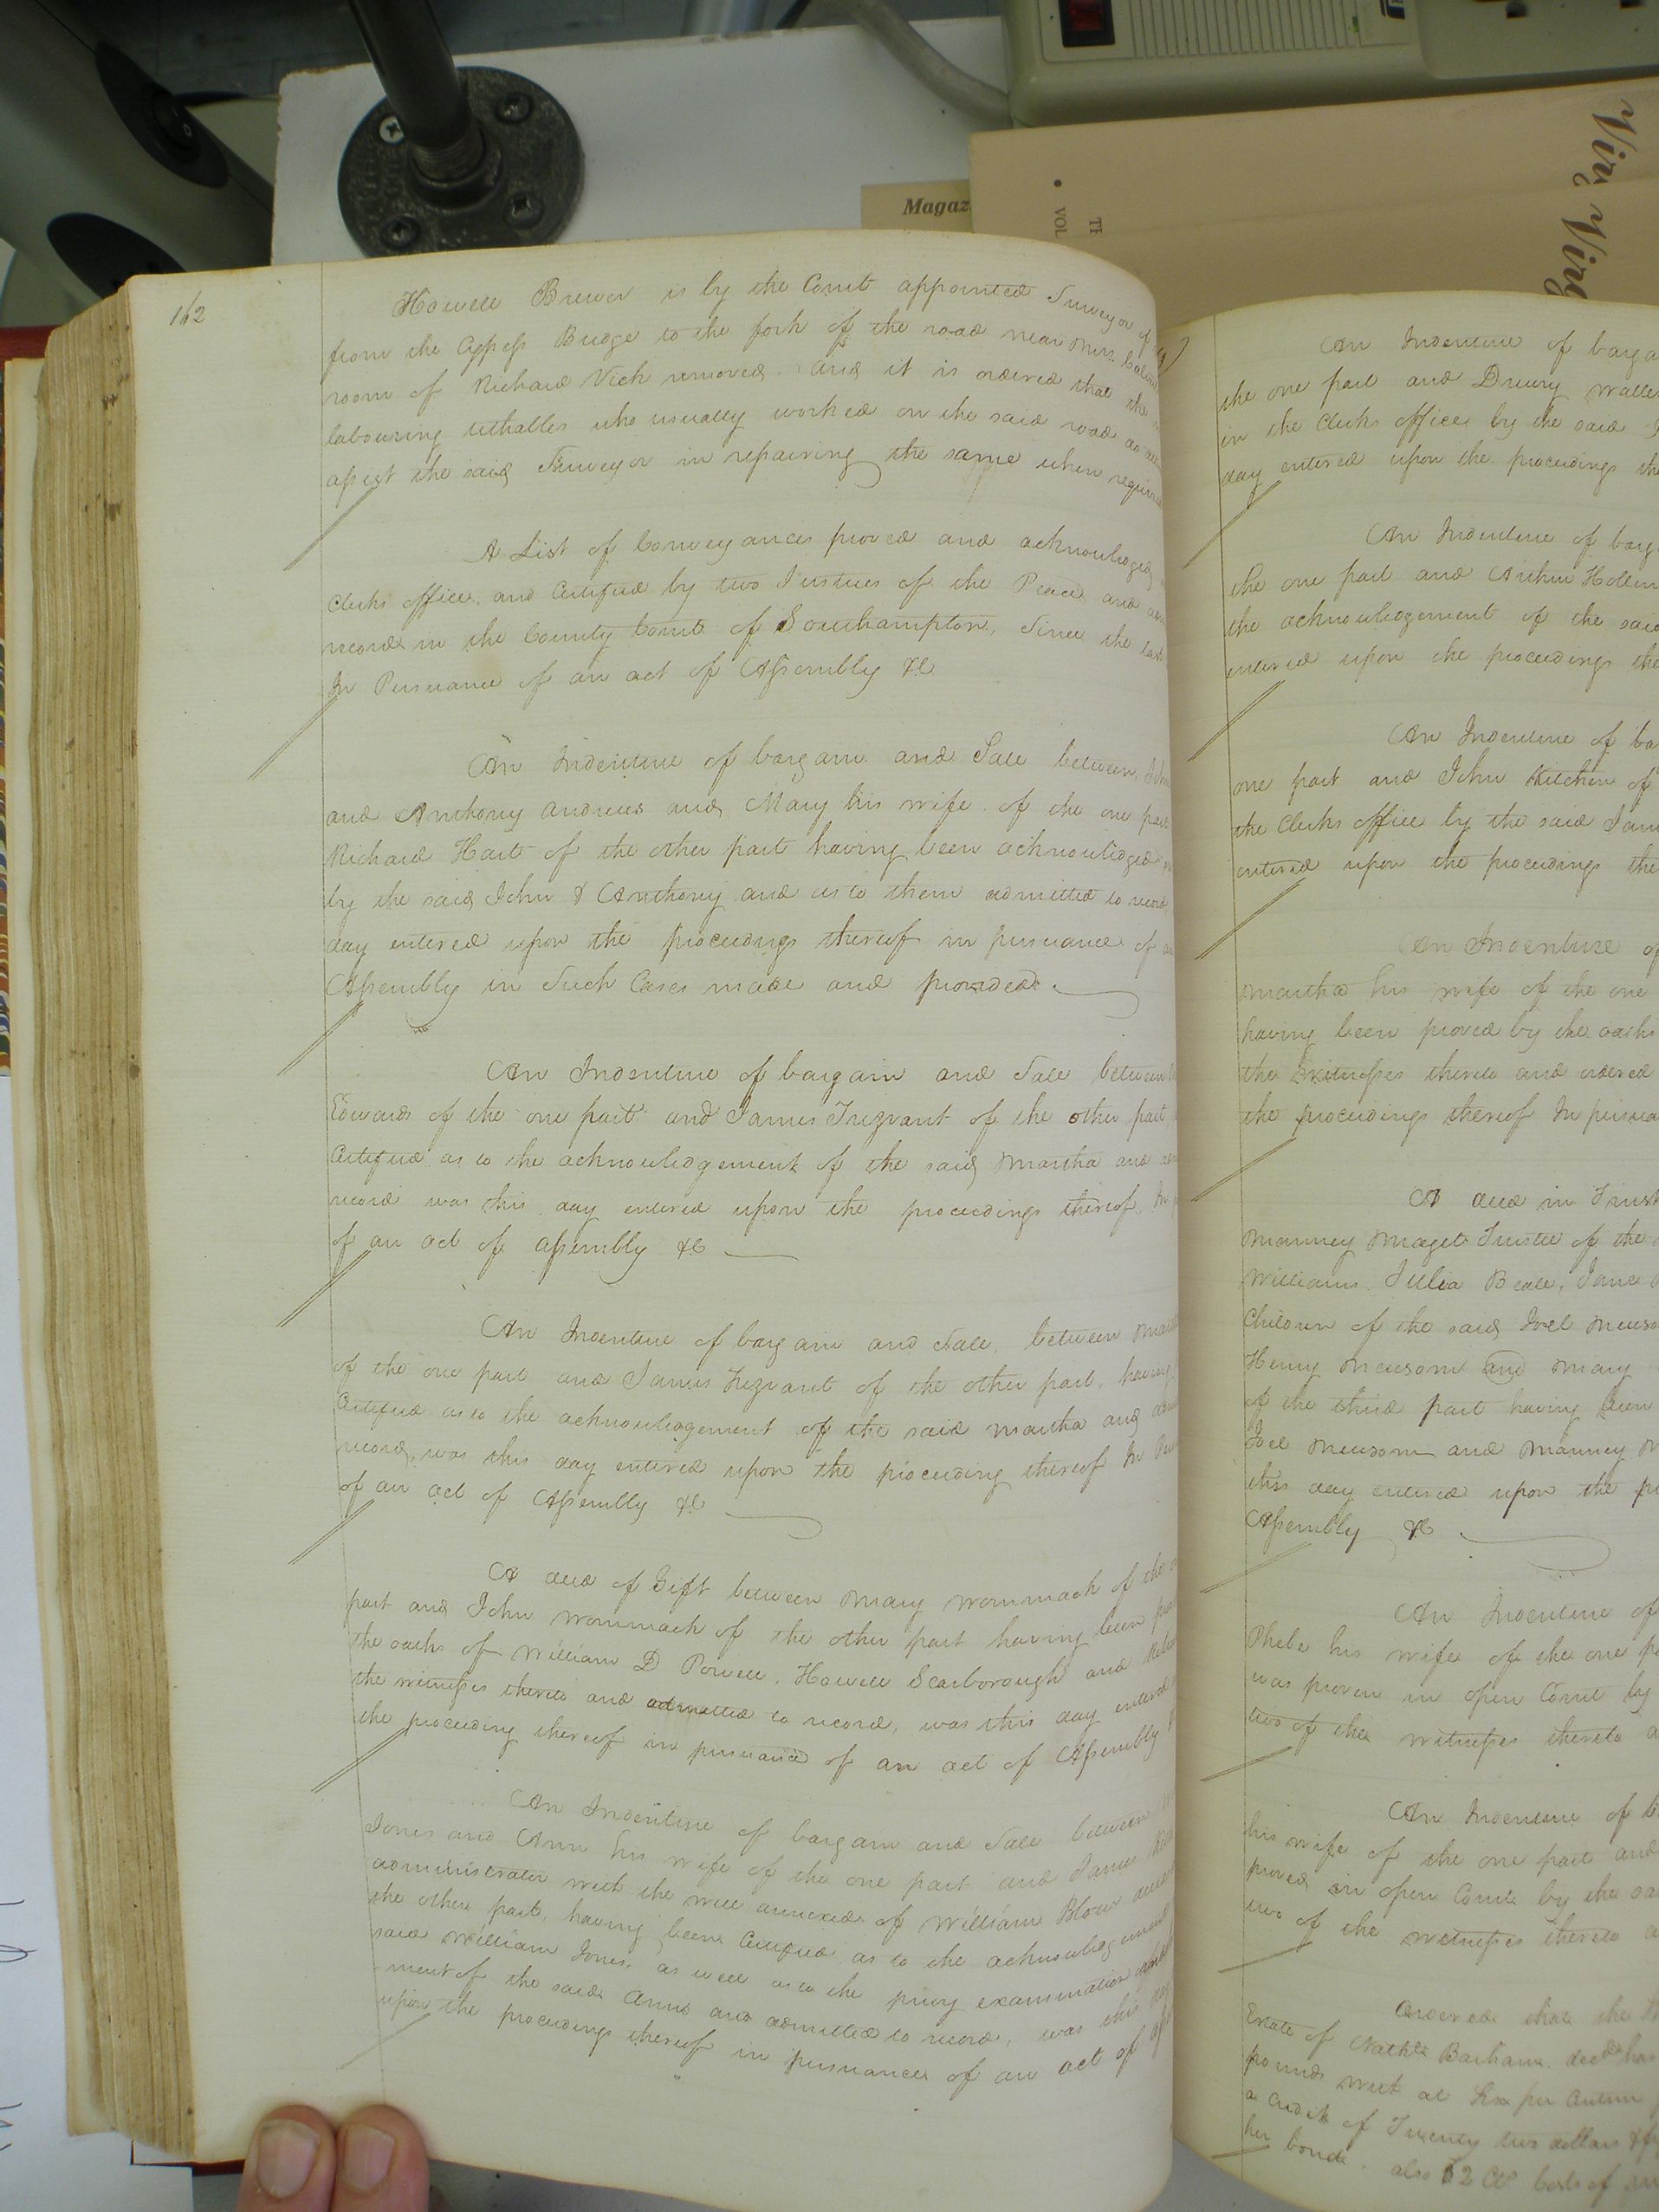 Magaz
TH
VOL
Vir
Virg
162
Howell Brewer is by the Court appointed Surveyor of
from the Cypress Bridge to the fork of the road near Mrs.
room of Richard Vick removed. And it is ordered that the
labouring tithables who usually worked on the said road do
assist the said Surveyor in repairing the same when required
A List of Conveyances proved and acknowledged
Clerks office, and Certified by two Justices of the Peace, and
record in the County Court of Southampton, Since the last
In Pursuance of an act of Assembly &c
An Indenture of bargain and Sale between John
and Anthony Andrews and Mary his wife of the one part
Richard Hart of the other part having been acknowledged
by the said John & Anthony and as to them admitted to record
day entered upon the proceedings thereof in pursuance of
Assembly in Such Cases made and provided.
An Indenture of bargain and Sale between
Edwards of the one part and James Trezvant of the other part
Certified as to the acknowledgement of the said Martha and
record was this day entered upon the proceedings thereof, In
of an act of Assembly &c
An Indenture of bargain and Sale, between
of the one part and James Trezvant of the other part, having
Certified as to the acknowledgement of the said Martha and
record, was this day entered upon the proceeding thereof In
of an act of Assembly &c
A deed of Gift between Mary Wommack of the
part and John Wommack of the other part having been
the oaths of William D Powell, Howell Scarborough and
the witnesses thereto and admitted to record, was this day entered
the proceeding thereof in pursuance of an act of Assembly
An Indenture of bargain and Sale between
Jones and Ann his wife of the one part and James
administrator with the will annexed of William Blow
the other part, having been Certified as to the acknowledgement
said William Jones, as well as to the privy examination
ment of the said Ann and admitted to record, was this
upon the proceedings thereof in pursuance of an act of
An Indenture of
the one part and Drury
in the Clerks office by the said
day entered upon the proceedings
An Indenture of
the one part and Arthur
the acknowledgement of the said
entered upon the proceedings
An Indenture of
one part and John Kitchen of
the Clerks office by the said
entered upon the proceedings
An Indenture of
Martha his wife of the one
having been proved by the oaths
the Witnesses thereto and ordered
the proceedings thereof In
A deed in Trust
Manney Maget Trustee of the
Williams, Julia Beale, Jane
Children of the said Joel
Henry Newsom and Mary
of the third part having been
Joel Newsom and Manney
this day entered upon the
Assembly &c
An Indenture of
Phebe his wife of the one
was proven in open Court by
two of the witnesses thereto
An Indenture of
his wife of the one part and
proved in open Court by the
two of the witnesses thereto
Ordered that the
Estate of Barham decd has
pounds with at Six per Centum
a Credit of Twenty two dollars
her bond. also